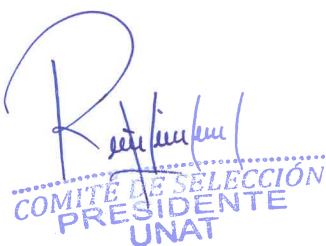 COMITÉ DE SELECCIÓN
PRESIDENTE
UNAT